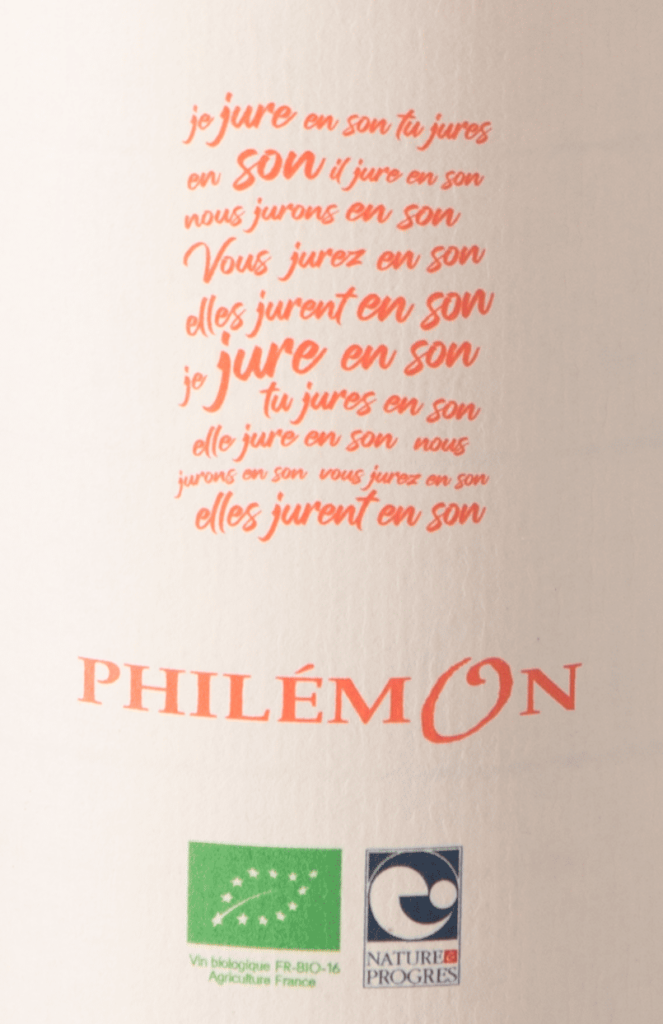 je jure en son tu jures
en son il jure en son
nous jurons en son
Vous jurez en son
elles jurent en son
je jure en son
tu jures en son
elle jure en son nous
jurons en son vous jurez en son
elles jurent en son
PHILÉMON
Vin biologique FR-BIO-16
Agriculture France
NATURE e
PROGRES